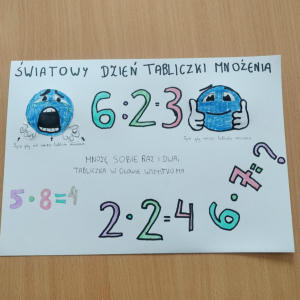 ŚWIATOWY DZIEŃ TABLICZKI MNOŻENIA
6:2=3
MNOŻĘ SOBIE RAZ I DWA,
TABLICZKA W GŁOWIE WSZYSTKO MA
5·8=4
2·2=4
6·7=?